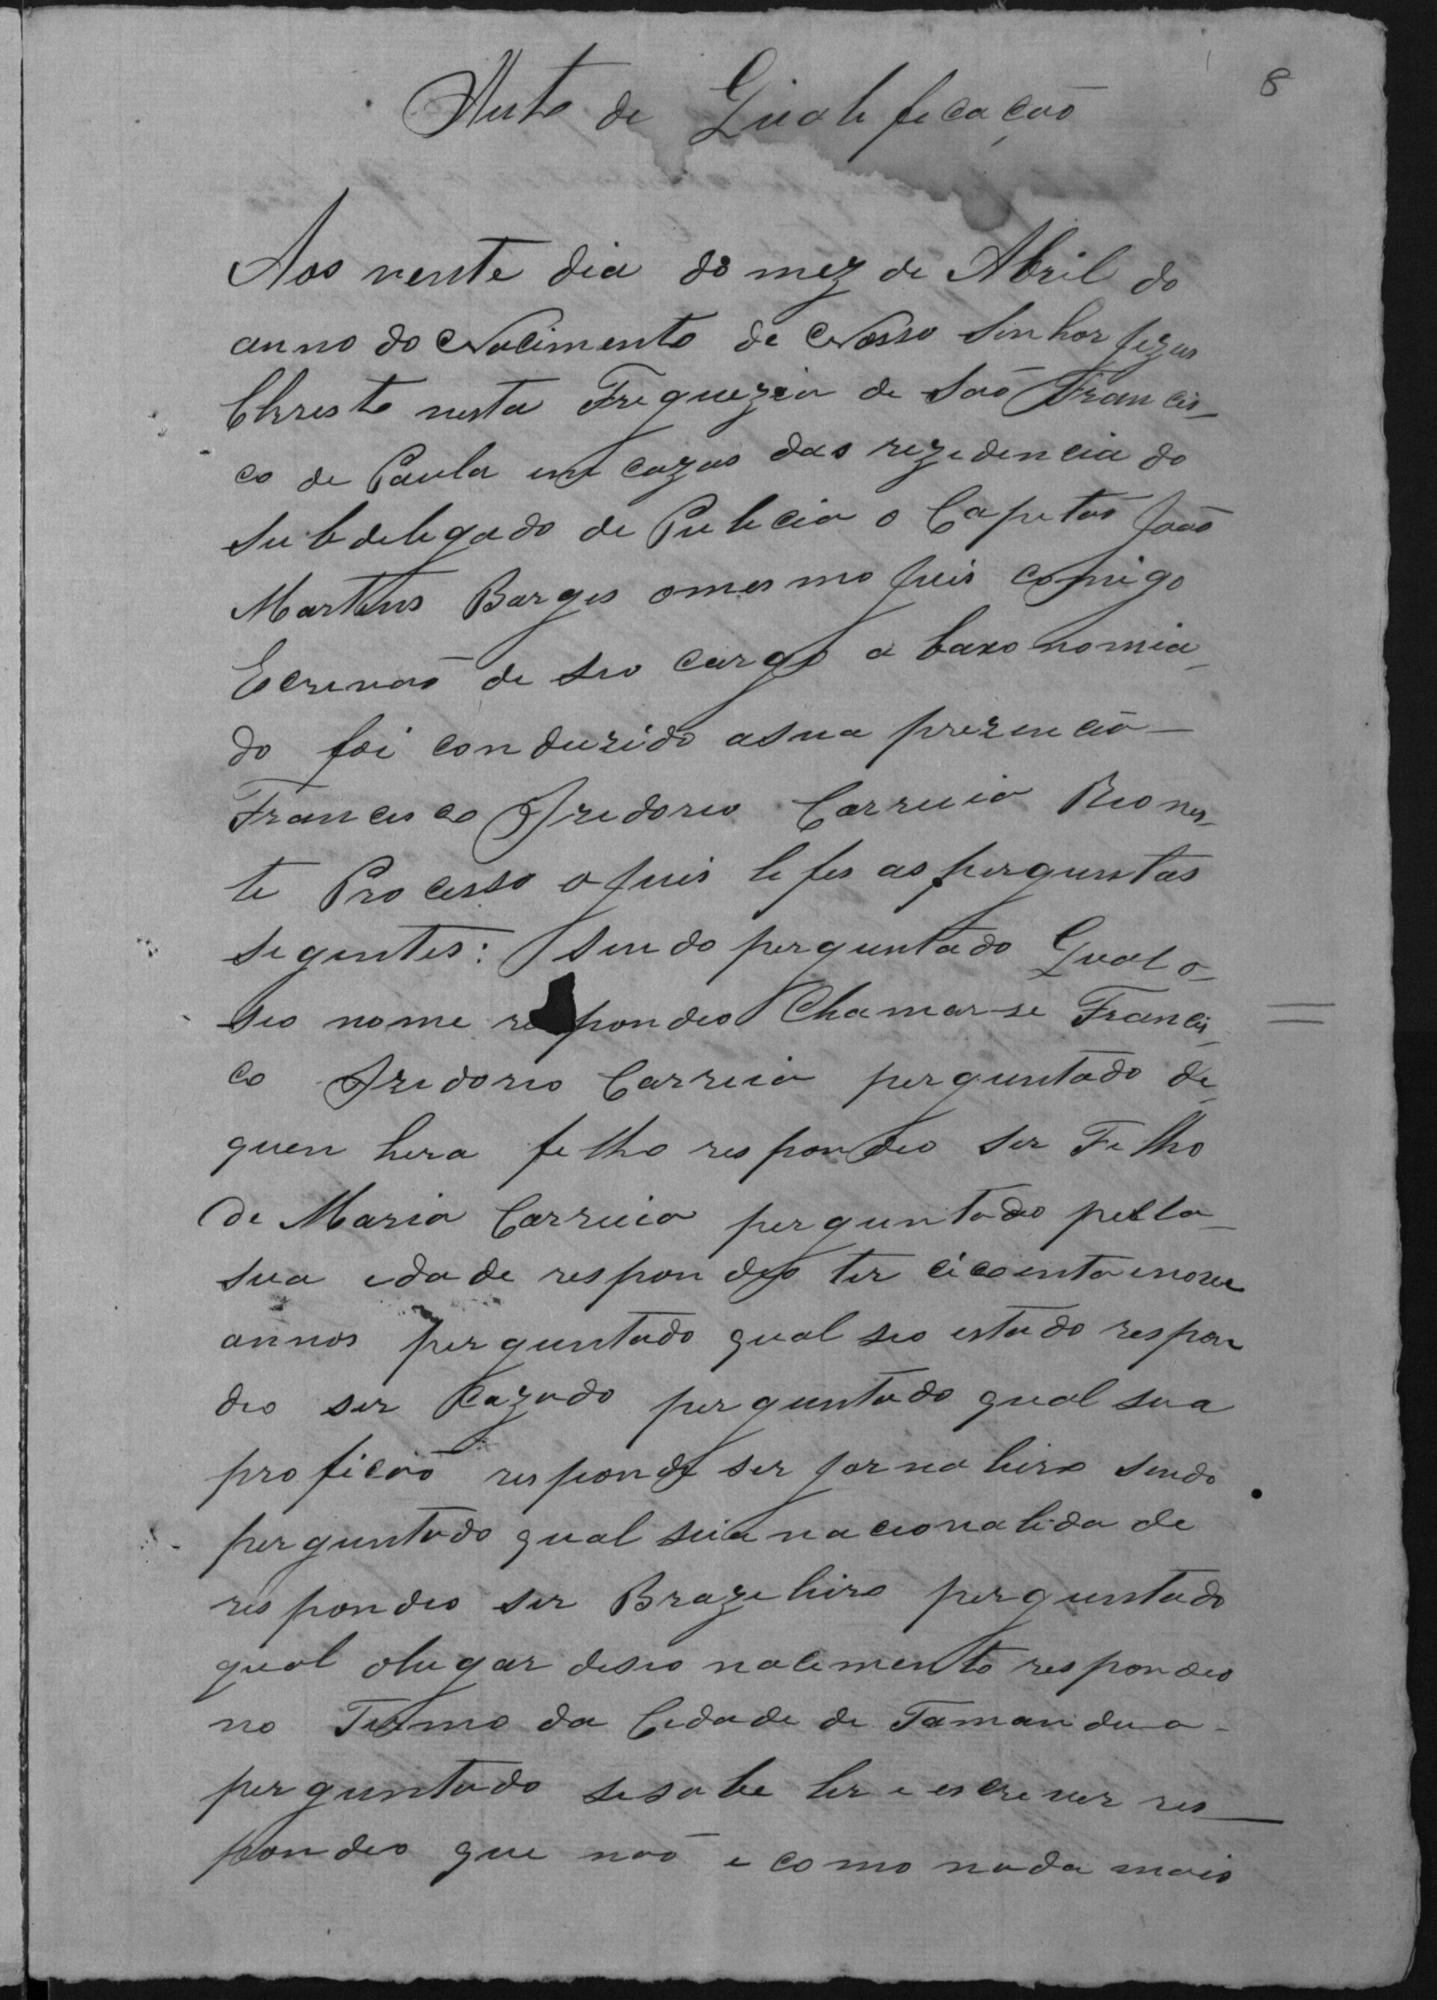 8
Auto de Qualefecação
Aos vente dia do mez de Abril do
anno do Nacimento de Nosso Senhor Jezus
Chresto nesta Freguezia de Saõ Francis-
co de Paula em cazas das rezedencia do
Subdelegado de Pulecia o Capetaõ Joaõ
Martens Barges o mesmo Juis comigo
Escrevaõ de seo cargo a baxo nomia-
do foi conduzido a sua prezencia
Francisco Izedoreo Correia Reo nes-
te Processo o Juis le fes as perguntas
segentes: Sendo perguntado Qual o
seo nome respondeo Chamar-se Francis-
co Izedoreo Correia perguntado de
quen hera felho respondeo ser Felho
de Maria Correia perguntado pella
sua edade respondeo ter cicoenta enove
annos perguntado qual seo estado respon
deo ser Cazado perguntado qual sua
proficaõ responde ser jornaleiro sendo
perguntado qual sua nacionalidade
respondeo ser Brazeleiro perguntado
qual olugar deseo nacemento respondeo
no Termo da Cedade de Tamandua
perguntado se sabe ler e escrever res-
pondeo que naõ e como nada mais